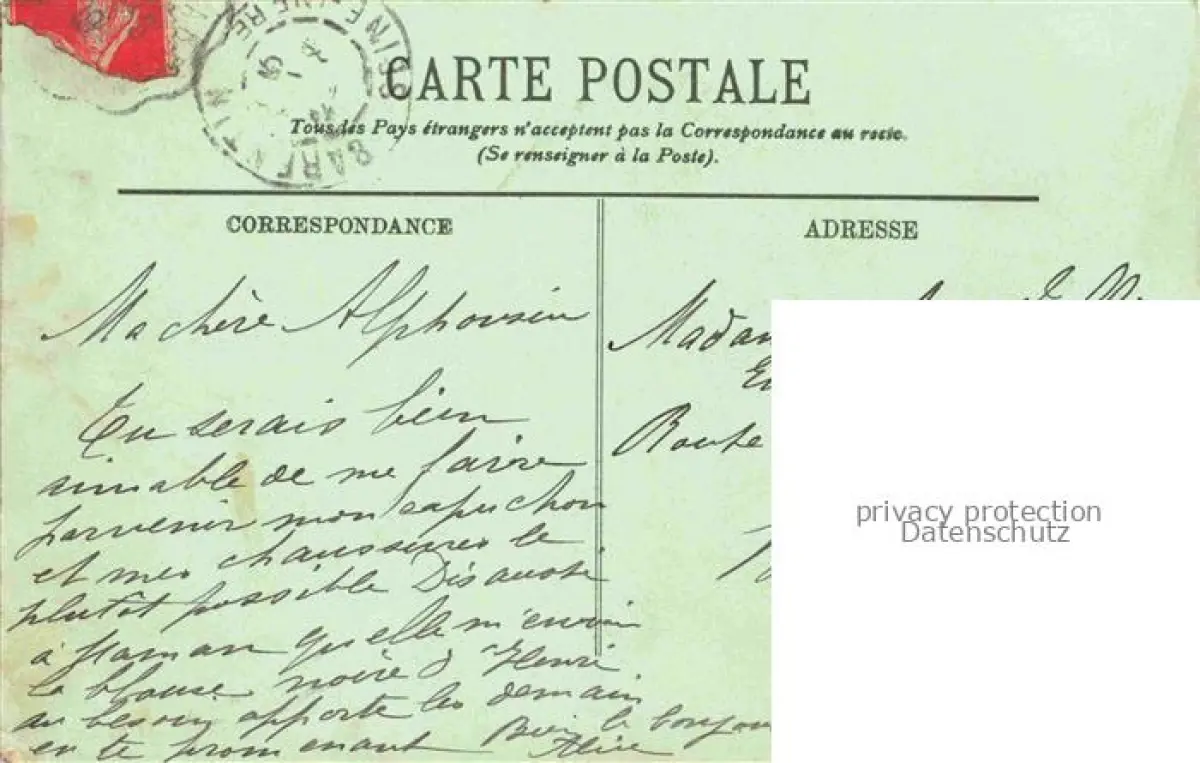 BARENTIN
SEINE
CARTE POSTALE
Tous les Pays étrangers n'acceptent pas la Correspondance au recto.
(Se renseigner à la Poste).
CORRESPONDANCE
Ma chère Alphonsin
Tu serais bien
aimable de me faire
parvenir mon capuchon
et mes chaussures le
plutôt possible Dis aussi
à Maman quelle m'envoie
la blouse noire d Henri
au besoin apporte les demain
en te promenant Bien le bonjou
Alice
ADRESSE
Madam
Route
privacy protection
Datenschutz